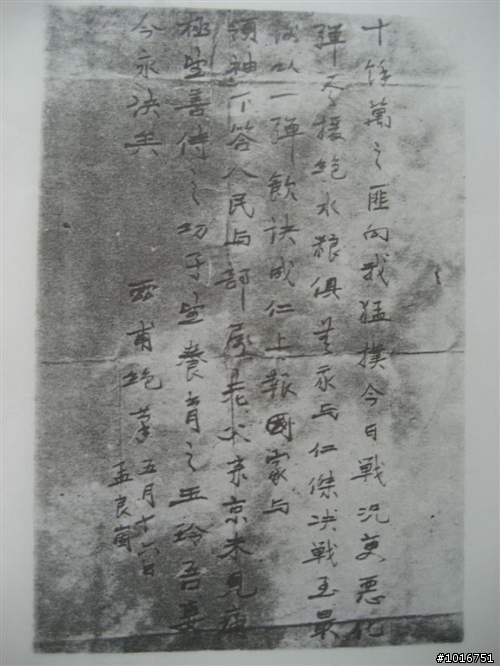 十餘萬之匪向我猛撲今日戰況更惡化
彈尽援絕水糧俱無我与仁傑决戰至最
後以一彈飲訣成仁上報國家与
領袖下答人民与部屬老父來京未見痛
極望善待之幼子望養育之玉玲吾妻
今永决矣
灵甫絕筆 五月十六日
孟良崮
#1016751